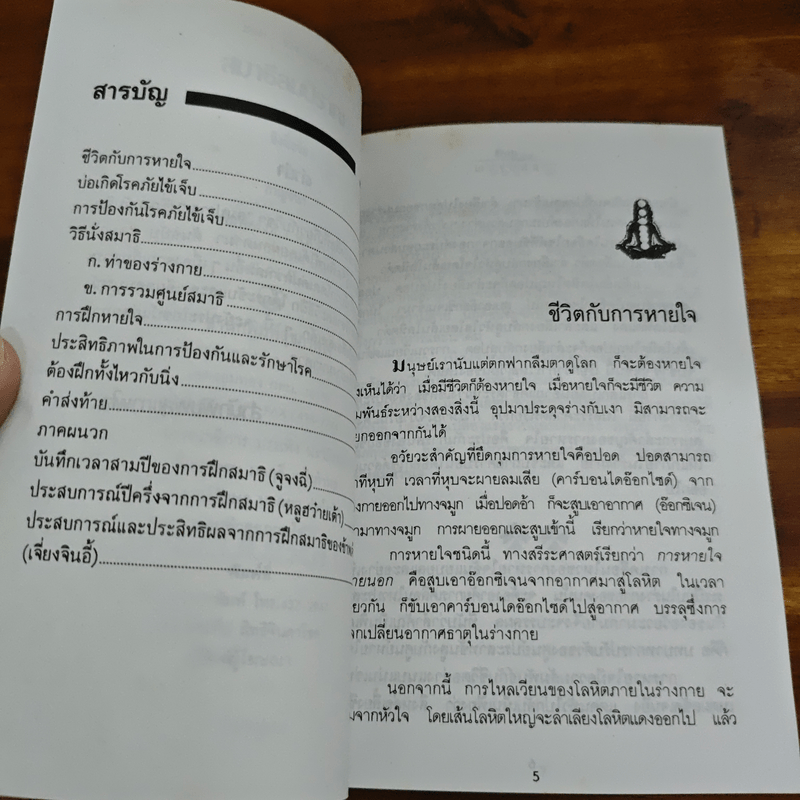 สารบัญ
ชีวิตกับการหายใจ
บ่อเกิดโรคภัยไข้เจ็บ
การป้องกันโรคภัยไข้เจ็บ
วิธีนั่งสมาธิ
ก. ท่าของร่างกาย
ข. การรวมศูนย์สมาธิ
การฝึกหายใจ
ประสิทธิภาพในการป้องกันและรักษาโรค
ต้องฝึกทั้งไหวกับนิ่ง
คำส่งท้าย
ภาคผนวก
บันทึกเวลาสามปีของการฝึกสมาธิ (จูจงฉี่)
ประสบการณ์ปีครึ่งจากการฝึกสมาธิ (หลูฮว๋ายเต้า)
ประสบการณ์และประสิทธิผลจากการฝึกสมาธิของข้าพเจ้า
(เจี่ยงจินอี้)
ชีวิตกับการหายใจ
มนุษย์เรานับแต่ตกฟากลืมตาดูโลก ก็จะต้องหายใจ
งเห็นได้ว่า เมื่อมีชีวิตก็ต้องหายใจ เมื่อหายใจก็จะมีชีวิต ความ
มพันธ์ระหว่างสองสิ่งนี้ อุปมาประดุจร่างกับเงา มิสามารถจะ
ยกออกจากกันได้
อวัยวะสำคัญที่ยึดกุมการหายใจคือปอด ปอดสามารถ
าทีหุบที เวลาที่หุบจะผายลมเสีย (คาร์บอนไดอ๊อกไซด์) จาก
างกายออกไปทางจมูก เมื่อปอดอ้า ก็จะสูบเอาอากาศ (อ๊อกซิเจน)
ามาทางจมูก การผายออกและสูบเข้านี้ เรียกว่าหายใจทางจมูก
การหายใจชนิดนี้ ทางสรีระศาสตร์เรียกว่า การหายใจ
ายนอก คือสูบเอาอ๊อกซิเจนจากอากาศมาสู่โลหิต ในเวลา
ียวกัน ก็ขับเอาคาร์บอนไดอ๊อกไซด์ไปสู่อากาศ บรรลุซึ่งการ
ลกเปลี่ยนอากาศธาตุในร่างกาย
นอกจากนี้ การไหลเวียนของโลหิตภายในร่างกาย จะ
มจากหัวใจ โดยเส้นโลหิตใหญ่จะลำเลียงโลหิตแดงออกไป แล้ว
5